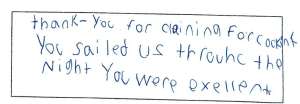 thank-You for claining For cockpit
You sailed us throuhc the
Night You were exellent